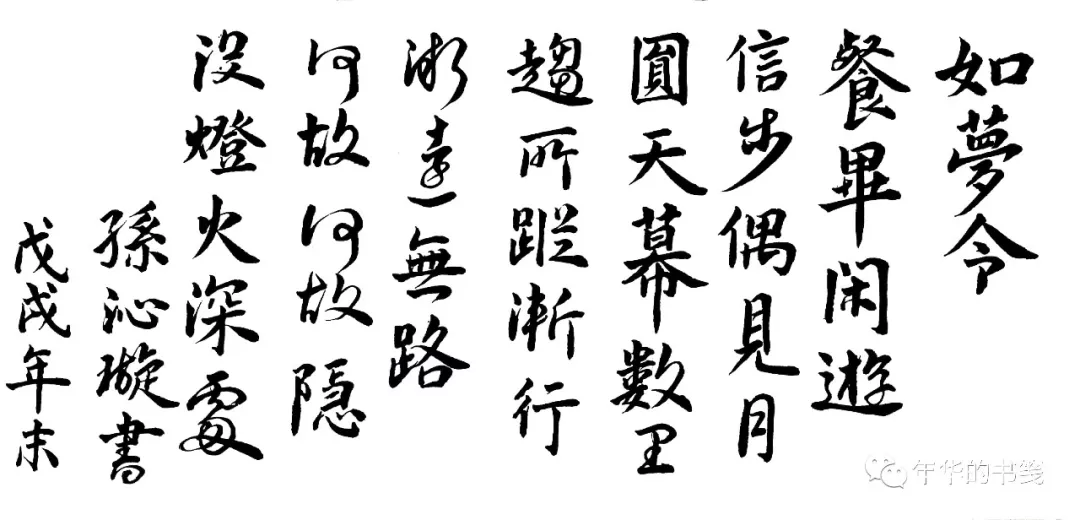 如夢令
餐畢闲遊
信步偶見月
圓天幕數里
趨所蹤漸行
渐遠無路
何故何故隐
沒燈火深處
孫沁璇書
戊戌年末
年华的书笺